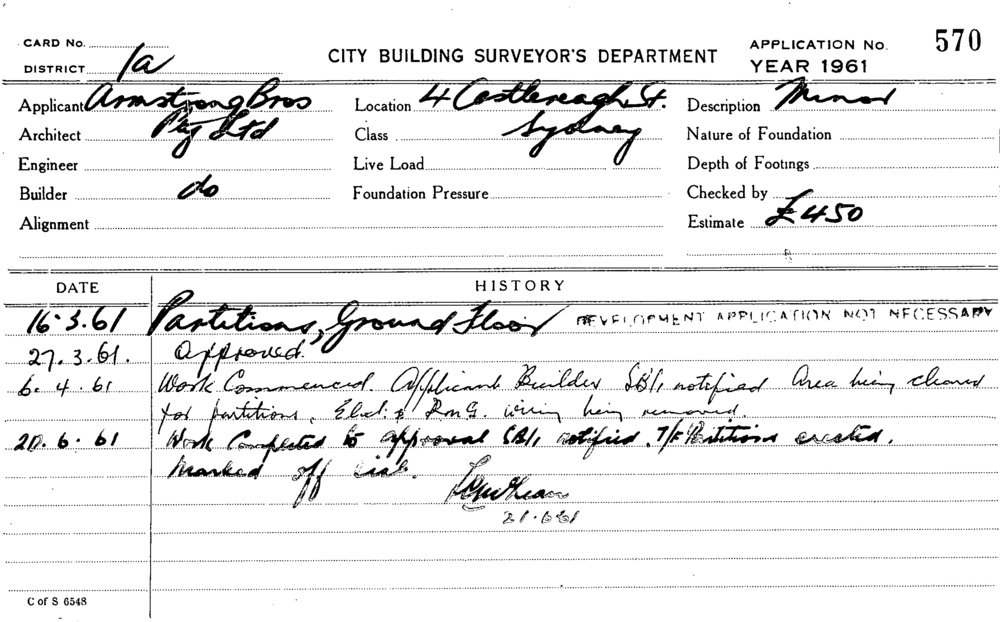 CARD No.
DISTRICT 1a
CITY BUILDING SURVEYOR'S DEPARTMENT
APPLICATION No. 570
YEAR 1961
Applicant Armstrong Bros
Pty Ltd
Location 4 Castlereagh St.
Sydney
Description Minor
Architect
Class
Nature of Foundation
Engineer
Live Load
Depth of Footings
Builder do
Foundation Pressure
Checked by
Alignment
Estimate £450
DATE HISTORY
16.3.61 Partitions, Ground Floor DEVELOPMENT APPLICATION NOT NECESSARY
27.3.61. Approved.
6.4.61 Work Commenced. Applicant Builder SB/1 notified Area being cleared
for partitions. Elect. & wiring being removed.
20.6.61 Work Completed to approval SB/1 notified. T/F Partitions erected.
Marked off
21.6.61
C of S 6548